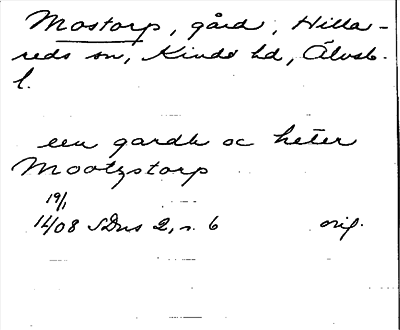 Mostorp, gård, Hilla-
reds sn, Kinds hd, Älvsb.
l.
een gardh oc heter
Mootzstorp
19/1
1408 SDns 2, s. 6 orig.